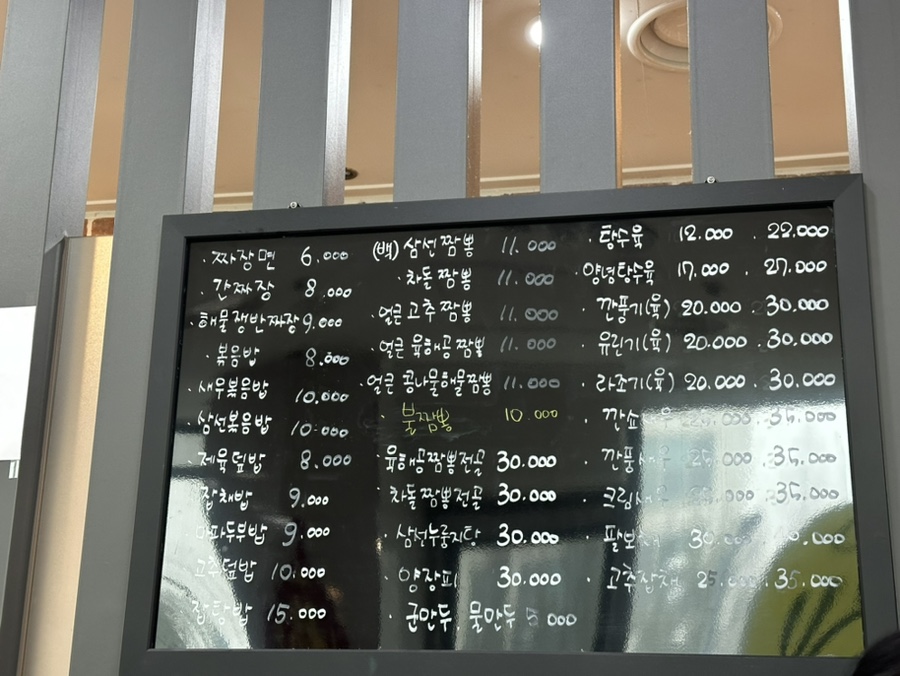 · 짜장면 6.000
· 간짜장 8.000
· 해물쟁반짜장 9.000
· 볶음밥 8.000
· 새우볶음밥 10.000
· 삼선볶음밥 10.000
· 제육덮밥 8.000
잡채밥 9.000
마파두부밥 9.000
고추덮밥 10.000
잡탕밥 15.000
(백) 삼선짬뽕 11.000
· 차돌짬뽕 11.000
· 얼큰고추짬뽕 11.000
· 얼큰육해공짬뽕 11.000
· 얼큰콩나물해물짬뽕 11.000
· 불짬뽕 10.000
· 육해공짬뽕전골 30.000
· 차돌짬뽕전골 30.000
· 삼선누룽지탕 30.000
· 양장피 30.000
· 군만두, 물만두 5.000
· 탕수육 12.000 · 22.000
· 양념탕수육 17.000 · 27.000
· 깐풍기(육) 20.000 · 30.000
· 유린기(육) 20.000 · 30.000
· 라조기(육) 20.000 · 30.000
· 깐쇼새우 25.000 · 35.000
· 깐풍새우 25.000 · 35.000
· 크림새우 25.000 · 35.000
· 팔보채 30.000
· 고추잡채 25.000 · 35.000